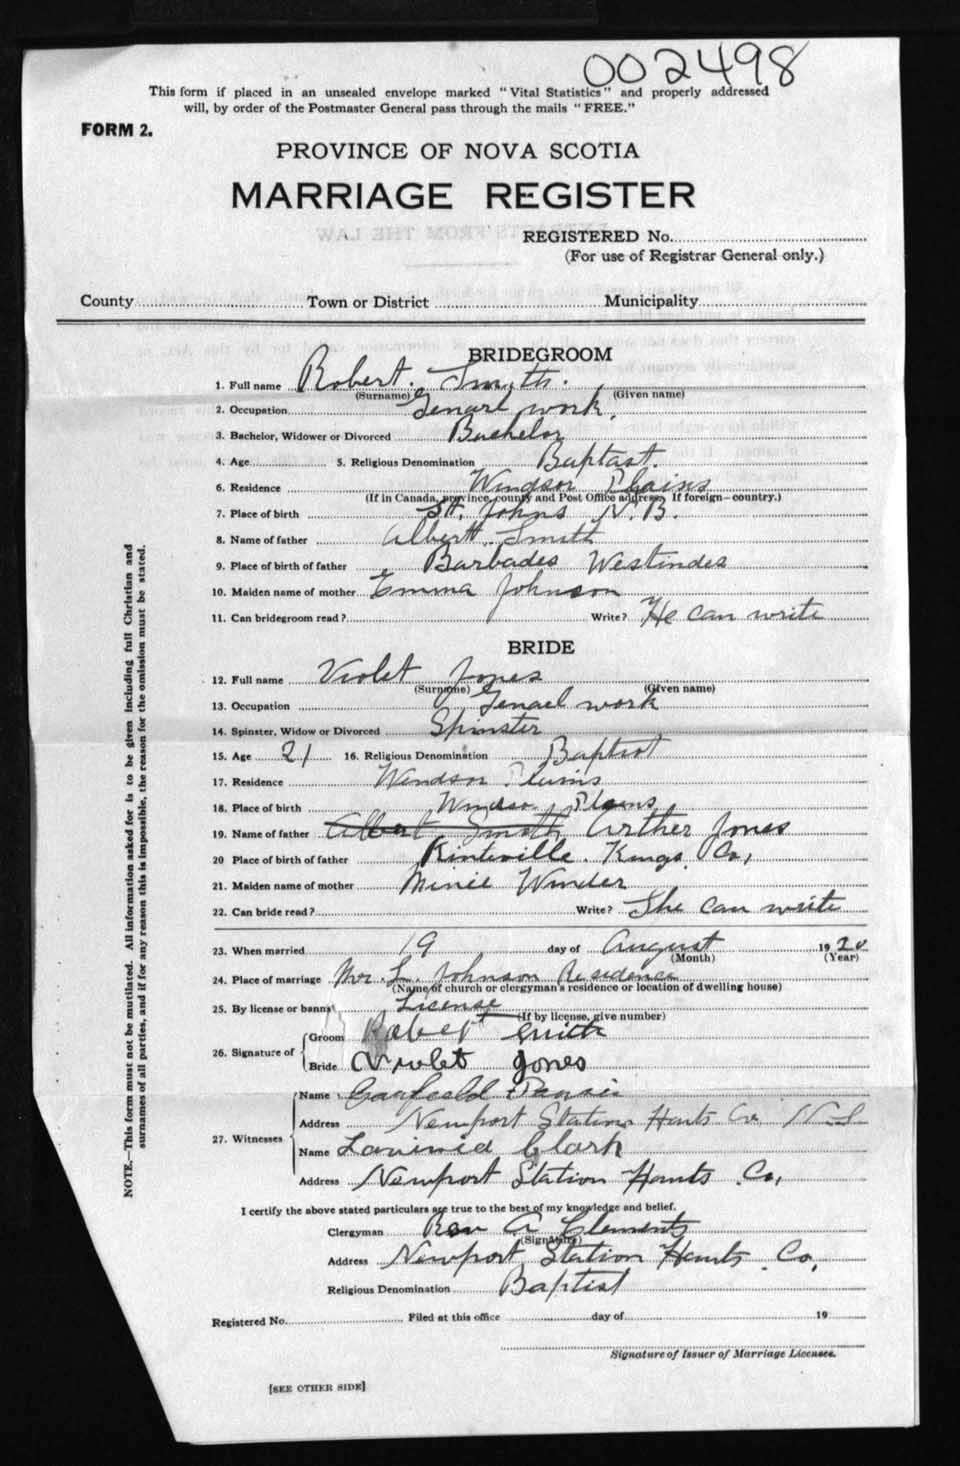 002498
This form if placed in an unsealed envelope marked "Vital Statistics" and properly addressed
will, by order of the Postmaster General pass through the mails "FREE."
FORM 2.
PROVINCE OF NOVA SCOTIA
MARRIAGE REGISTER
REGISTERED No.
(For use of Registrar General only.)
County Town or District Municipality
BRIDEGROOM
1. Full name Robert. Smith.
(Surname) (Given name)
2. Occupation Genarl work.
3. Bachelor, Widower or Divorced Bachelor
4. Age 5. Religious Denomination Baptast.
6. Residence Windsor Plains
(If in Canada, province, county and Post Office address. If foreign—country.)
7. Place of birth St. Johns N.B.
8. Name of father Albert Smith
9. Place of birth of father Barbades Westindes
10. Maiden name of mother Emma Johnson
11. Can bridegroom read? Write? He can write
BRIDE
12. Full name Violet Jones
(Surname) (Given name)
13. Occupation Genael work
14. Spinster, Widow or Divorced Spinster
15. Age 21 16. Religious Denomination Baptist
17. Residence Windsor Plains
18. Place of birth Windsor Plains
19. Name of father Albert Smith Arther Jones
20 Place of birth of father Kinteville. Kings Co,
21. Maiden name of mother Minie Winder
22. Can bride read? Write? She can write
23. When married 19 day of August 1920
(Month) (Year)
24. Place of marriage Mr. L. Johnson Residence
(Name of church or clergyman's residence or location of dwelling house)
25. By license or banns License
(If by license, give number)
26. Signature of Groom Robert Smith
Bride Violet Jones
27. Witnesses
Name
Address Newport Station Hants Co. N.S
Name Lavinia Clark
Address Newport Station Hants Co,
I certify the above stated particulars are true to the best of my knowledge and belief.
Clergyman Rev A Clements
(Signature)
Address Newport Station Hants Co,
Religious Denomination Baptist
Registered No. Filed at this office day of 19
Signature of Issuer of Marriage Licenses.
[SEE OTHER SIDE]
NOTE.—This form must not be mutilated. All information asked for is to be given including full Christian and
surnames of all parties, and if for any reason this is impossible, the reason for the omission must be stated.